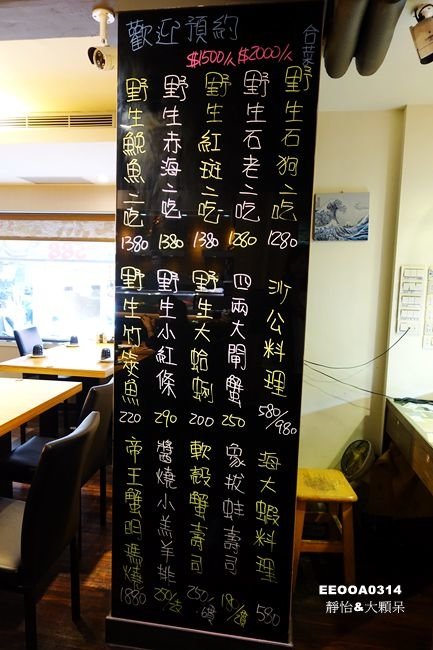 歡迎預約
合菜
$1500/人 $2000/人
野生石狗二吃 1280
野生石老二吃 1280
野生紅斑二吃 1380
野生赤海二吃 1380
野生鮸魚二吃 1380
沙公料理 580/980
四兩大閘蟹 250
野生大蛤蜊 200
野生小紅條 290
野生竹筴魚 220
海大蝦料理 580
象拔蚌壽司
軟殼蟹壽司
醬燒小羔羊排
帝王蟹明瑪燒 1880
EEOOA0314
靜怡&大顆呆